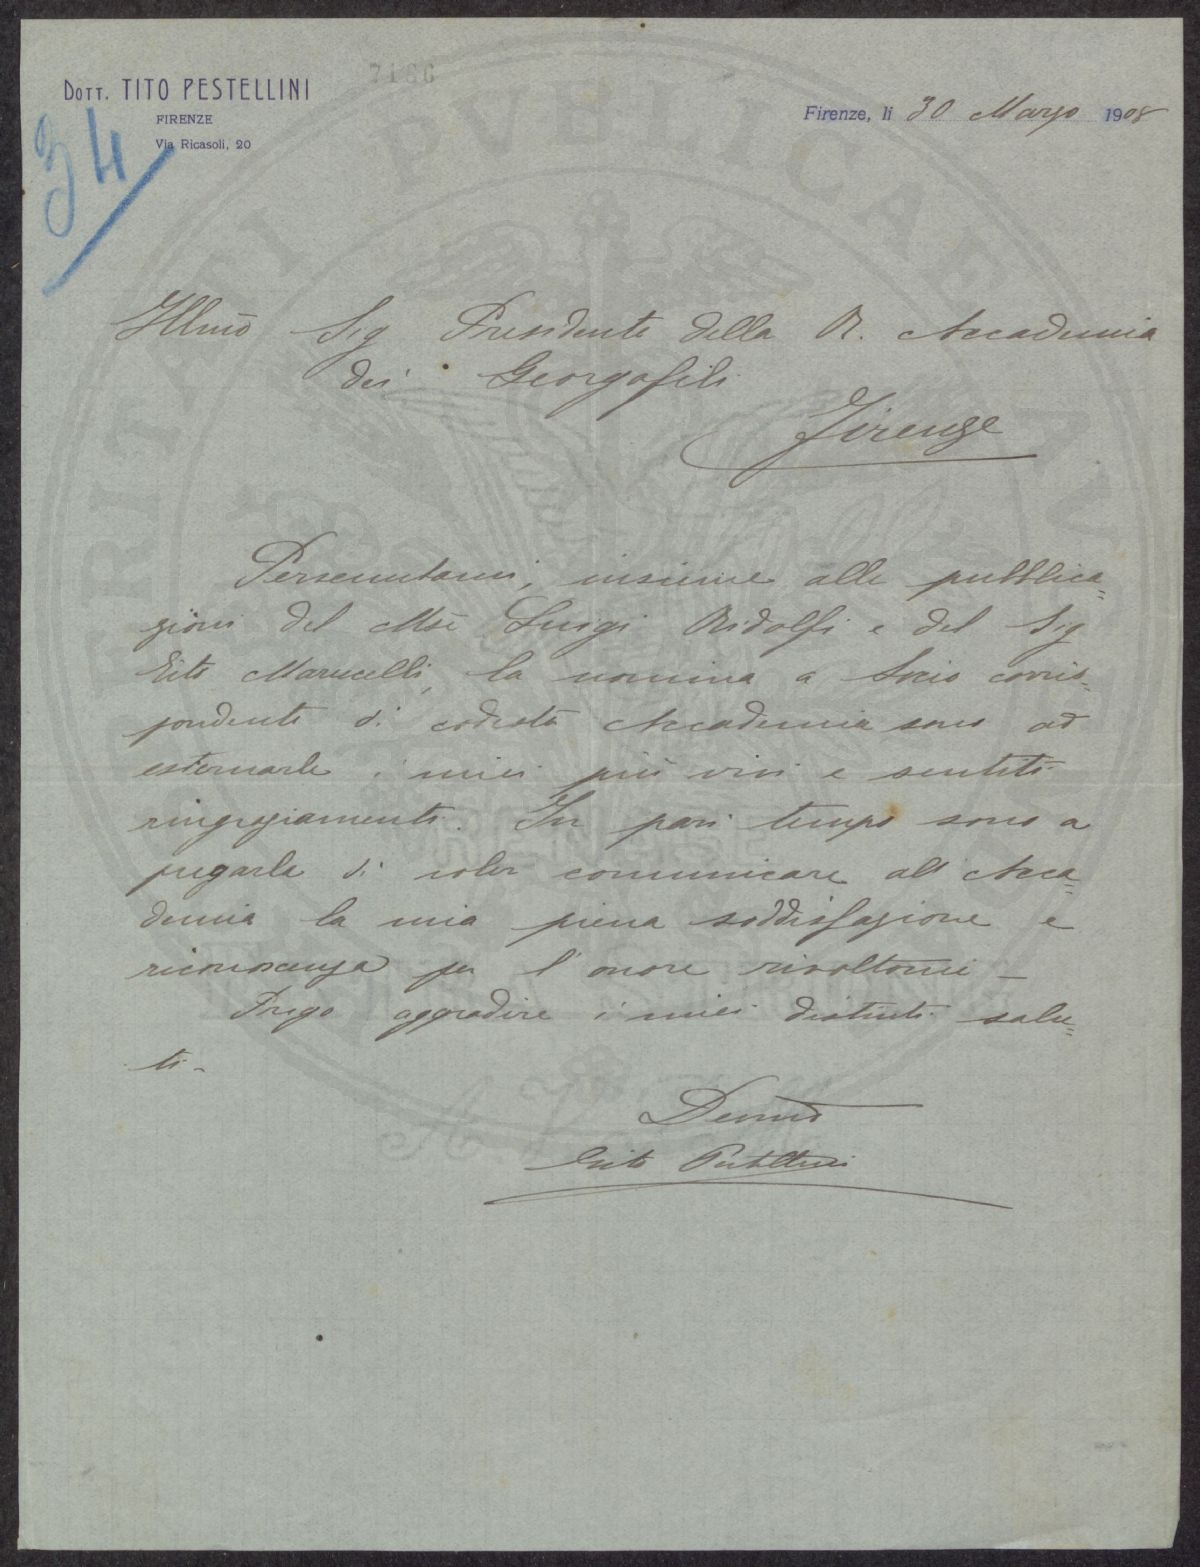 7186
DOTT. TITO PESTELLINI
FIRENZE
Via Ricasoli, 20
34
Firenze, li 30 Marzo 1908
Illmo Sig Presidente della R. Accademia
dei Georgofili
Firenze
Pervenutami, insieme alle pubblica=
zioni del Mse Luigi Ridolfi e del Sig
Tito Marucelli, la nomina a Socio corris=
pondente di codesta Accademia sono ad
esternarle i miei più vivi e sentiti
ringraziamenti. In pari tempo sono a
pregarla di voler comunicare all'Acca=
demia la mia piena soddisfazione e
riconoscenza per l'onore rivoltomi –
Prego aggradire i miei distinti salu=
ti –
Devmo
Tito Pestellini